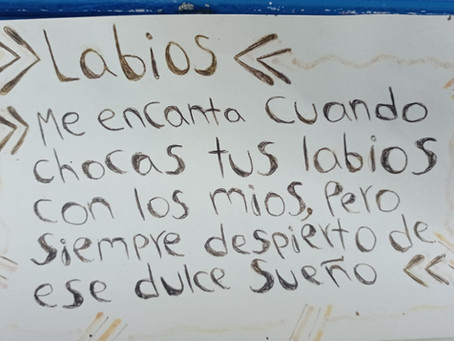 >> Labios <<
>> Me encanta cuando
chocas tus labios
con los mios, Pero
siempre despierto de
ese dulce sueño <<